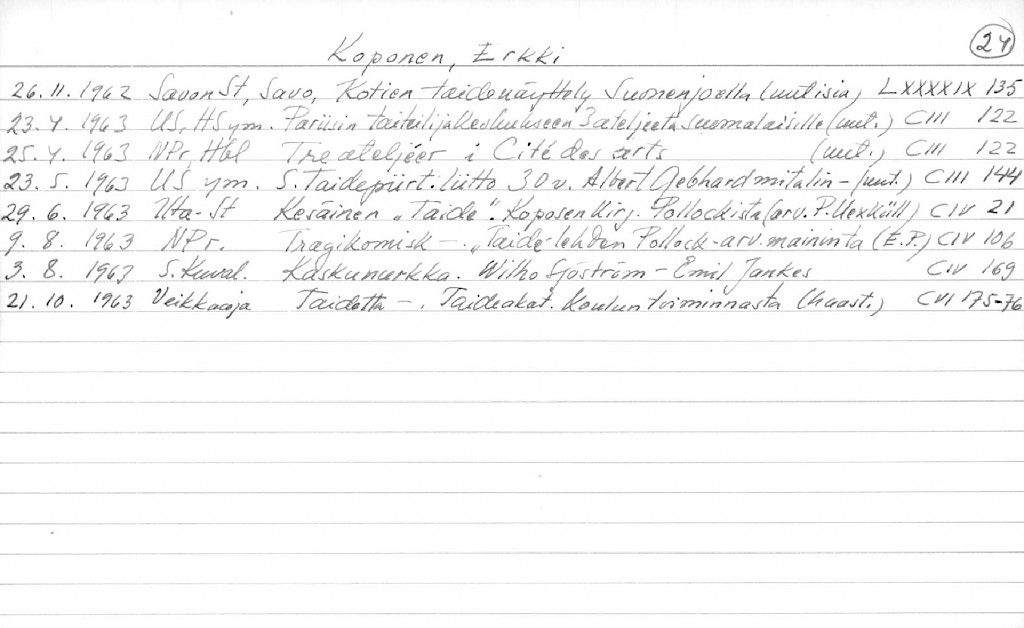 24
Koponen, Erkki
26.11.1962 Savon St, Savo, Kotien taidenäyttely Suonenjoella (uutisia) LXXXXIX 135
23.4.1963 US, HS ym. Pariisin taiteilijakeskukseen 3 ateljeeta suomalaisille (uut.) CIII 122
25.4.1963 NPr, Hbl Tre ateljéer i Cité des arts (uut.) CIII 122
23.5.1963 US ym. S. Taidepiirt. liitto 30 v. Albert Gebhard mitalin - (uut.) CIII 144
29.6.1963 Uta-St Kesäinen "Taide". Koposen kirj. Pollockista (arv. P. Uexküll) CIV 21
9.8.1963 NPr. Tragikomisk -. "Taide-lehden Pollock-arv. maininta (E.P.) CIV 106
3.8.1963 S. Kuval. Kaskunurkka. Wilho Sjöström - Emil Jankes CIV 169
21.10.1963 Veikkaaja Taidetta -. Taideakat. koulun toiminnasta (haast.) CVI 175-76